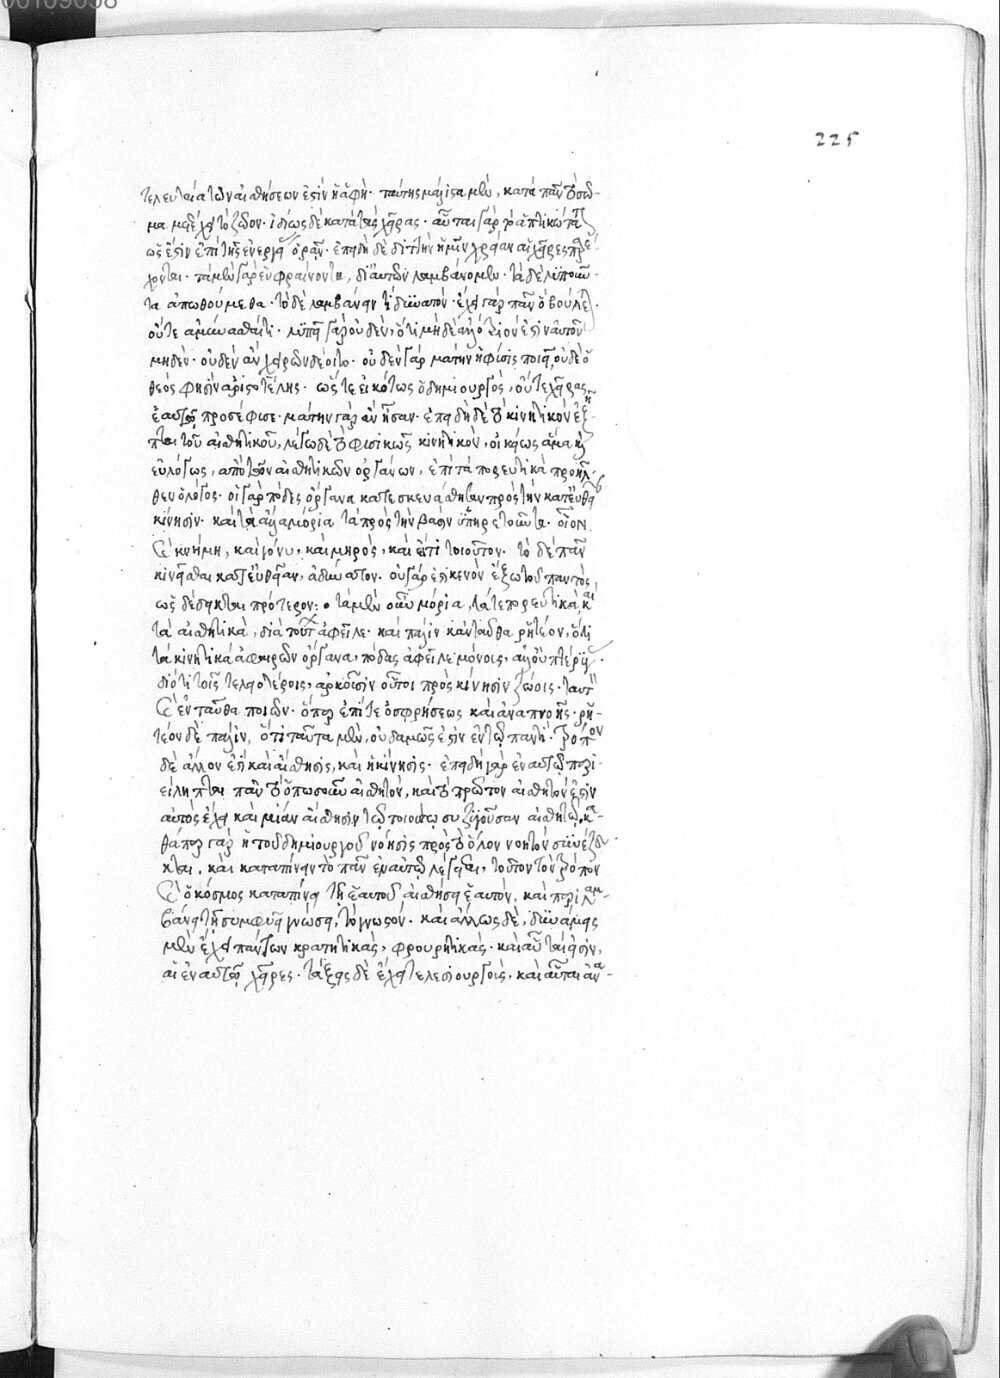 00109058
225
τελευταία τῶν αἰσθήσεων ἐστὶν ἡ ἁφή· ταύτης μάλιστα μὲν, κατὰ πᾶν τὸ σῶ-
μα μετέχει τὸ ζῶον· ἰδίως δὲ κατὰ τὰς χεῖρας· αὗται γὰρ
ὡς ἐστὶν ἐπὶ τῆς ἐνεργείας ὁρᾶν· ἐπειδὴ δὲ διττὴν ἡμῖν χρείαν αἱ χεῖρες παρέ-
χονται· τὰ μὲν γὰρ εὐφραίνοντα, δι' αὐτῶν λαμβάνομεν· τὰ δὲ λυποῦν-
τα ἀπωθούμεθα· τὸ δὲ λαμβάνειν τί ἀδύνατον· ἔχει γὰρ πᾶν ὃ βούλεται·
οὔτε ἀμύνασθαί τι· λυπεῖ γὰρ οὐδὲν, ὅτι μηδὲ ἀλλότριόν ἐστιν αὐτοῦ
μηδέν· οὐδὲν ἂν χειρῶν δέοιτο· οὐδὲν γὰρ μάτην ἡ φύσις ποιεῖ, οὐδὲ ὁ
θεὸς φησὶν ἀριστοτέλης· ὥστε εἰκότως ὁ δημιουργὸς, οὔτε χεῖρας
ἑαυτῷ προσέφυσε· μάτην γὰρ ἂν ἦσαν· ἐπειδὴ δὲ τὸ κινητικὸν ἐξήρ-
τηται τοῦ αἰσθητικοῦ, λέγω δὲ τὸ φυσικῶς κινητικὸν, οἰκείως ἅμα καὶ
εὐλόγως, ἀπὸ τῶν αἰσθητικῶν ὀργάνων, ἐπὶ τὰ πορευτικὰ προῆλ-
θεν ὁ λόγος· οἱ γὰρ πόδες ὄργανα κατεσκευάσθησαν πρὸς τὴν κατ' εὐθεῖαν
κίνησιν· καὶ τὰ ἄλλα μόρια τὰ πρὸς τὴν βάσιν ὑπηρετοῦντα· οἷον
ἡ κνήμη, καὶ γόνυ, καὶ μηρὸς, καὶ εἴ τι τοιοῦτον· τὸ δὲ πᾶν
κινεῖσθαι κατ' εὐθεῖαν, ἀδύνατον· οὐ γάρ ἐστι κενὸν ἔξω τοῦ παντὸς,
ὡς δέδεικται πρότερον: τὰ μὲν οὖν μόρια, τά τε πορευτικὰ, καὶ
τὰ αἰσθητικὰ, διὰ τοῦτο ἀφεῖλε· καὶ πάλιν κἀνταῦθα ῥητέον, ὅτι
τὰ κινητικὰ ἀφαιρῶν ὄργανα, πόδας ἀφεῖλε μόνους, ἀλλ' οὐ πτέρυγας·
διότι τοῖς τελειοτέροις, ἀρκοῦσιν οὗτοι πρὸς κίνησιν ζώοις· ταυτὸν
καὶ ἐνταῦθα ποιῶν· ὅπερ ἐπί τε ὀσφρήσεως καὶ ἀναπνοῆς· ῥη-
τέον δὲ πάλιν, ὅτι ταῦτα μὲν, οὐδαμῶς ἐστὶν ἐν τῷ παντί· τρόπον
δὲ ἄλλον ἐστὶ καὶ αἴσθησις, καὶ ἡ κίνησις· ἐπειδὴ γὰρ ἐν αὐτῷ περι-
είληπται πᾶν τὸ ὁπωσοῦν αἰσθητὸν, καὶ τὸ πρῶτον αἰσθητόν ἐστιν
αὐτὸς ἔχει καὶ μίαν αἴσθησιν τῷ τοιούτῳ συζυγοῦσαν αἰσθητῷ, κα-
θάπερ γὰρ ἡ τοῦ δημιουργοῦ νόησις πρὸς τὸ ὅλον νοητὸν συνέζευ-
κται, καὶ καταπίνειν τὸ πᾶν ἐν αὐτῷ λέγεται, τοῦτον τὸν τρόπον
καὶ ὁ κόσμος καταπίνει τῇ ἑαυτοῦ αἰσθήσει ἑαυτὸν, καὶ περιλαμ-
βάνει τῇ συμφυεῖ γνώσει, τὸ γνωστόν· καὶ ἄλλως δὲ, δυνάμεις
μὲν ἔχει πάντων κρατητικὰς, φρουρητικάς· καὶ αὗταί εἰσιν,
αἱ ἐν αὐτῷ χεῖρες· τάξεις δὲ ἔχει τελεσιουργοὺς, καὶ αὗται ἀν-